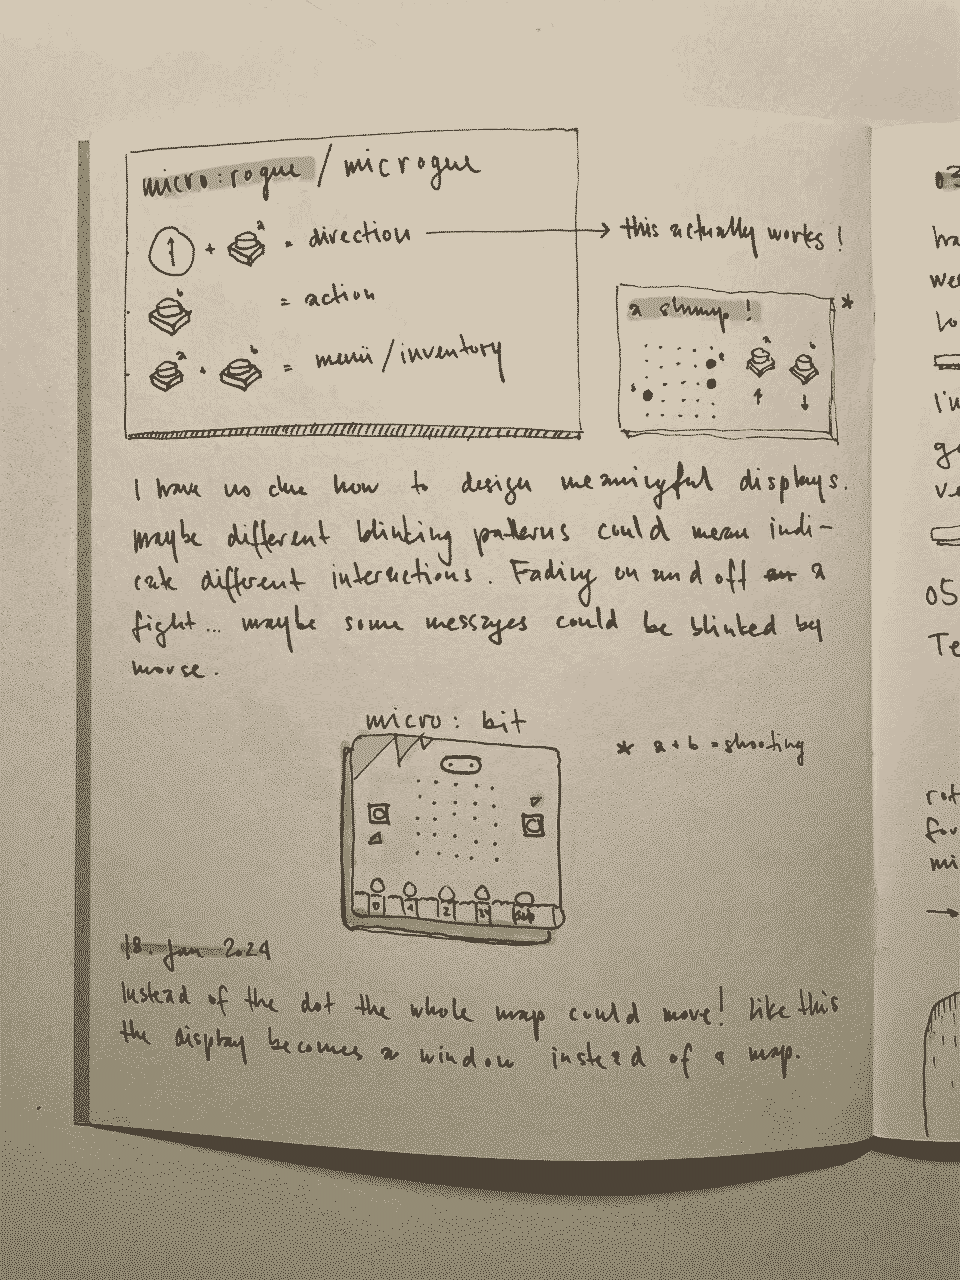 micro:rogue / microgue
a
+ = direction → this actually works!
b
= action
a b
+ = menü / inventory
a shmup! *
a b
I have no clue how to design meaningful displays.
maybe different blinking patterns could mean indi-
cate different interactions. Fading on and off an a
fight... maybe some messages could be blinked by
morse.
micro: bit
0 1 2 3V GND
* a + b = shooting
18. Jan 2024
Instead of the dot the whole map could move! Like this
the display becomes a window instead of a map.
03
05
Te
rot
for
mi